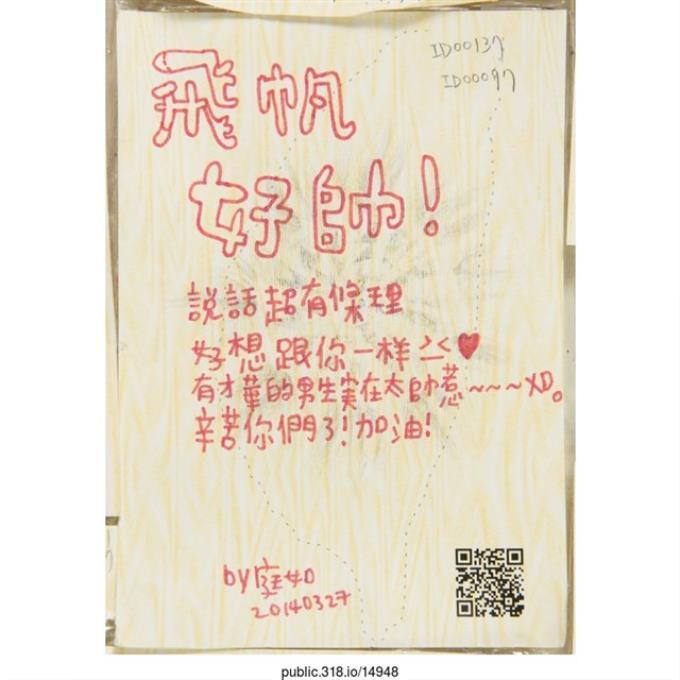 ID00137
ID00097
飛帆
好帥!
說話超有條理
好想跟你一样ㄠㄑ♥
有才華的男生実在太帥惹~~~XD。
辛苦你們了!加油!
by庭如
20140327
public.318.io/14948